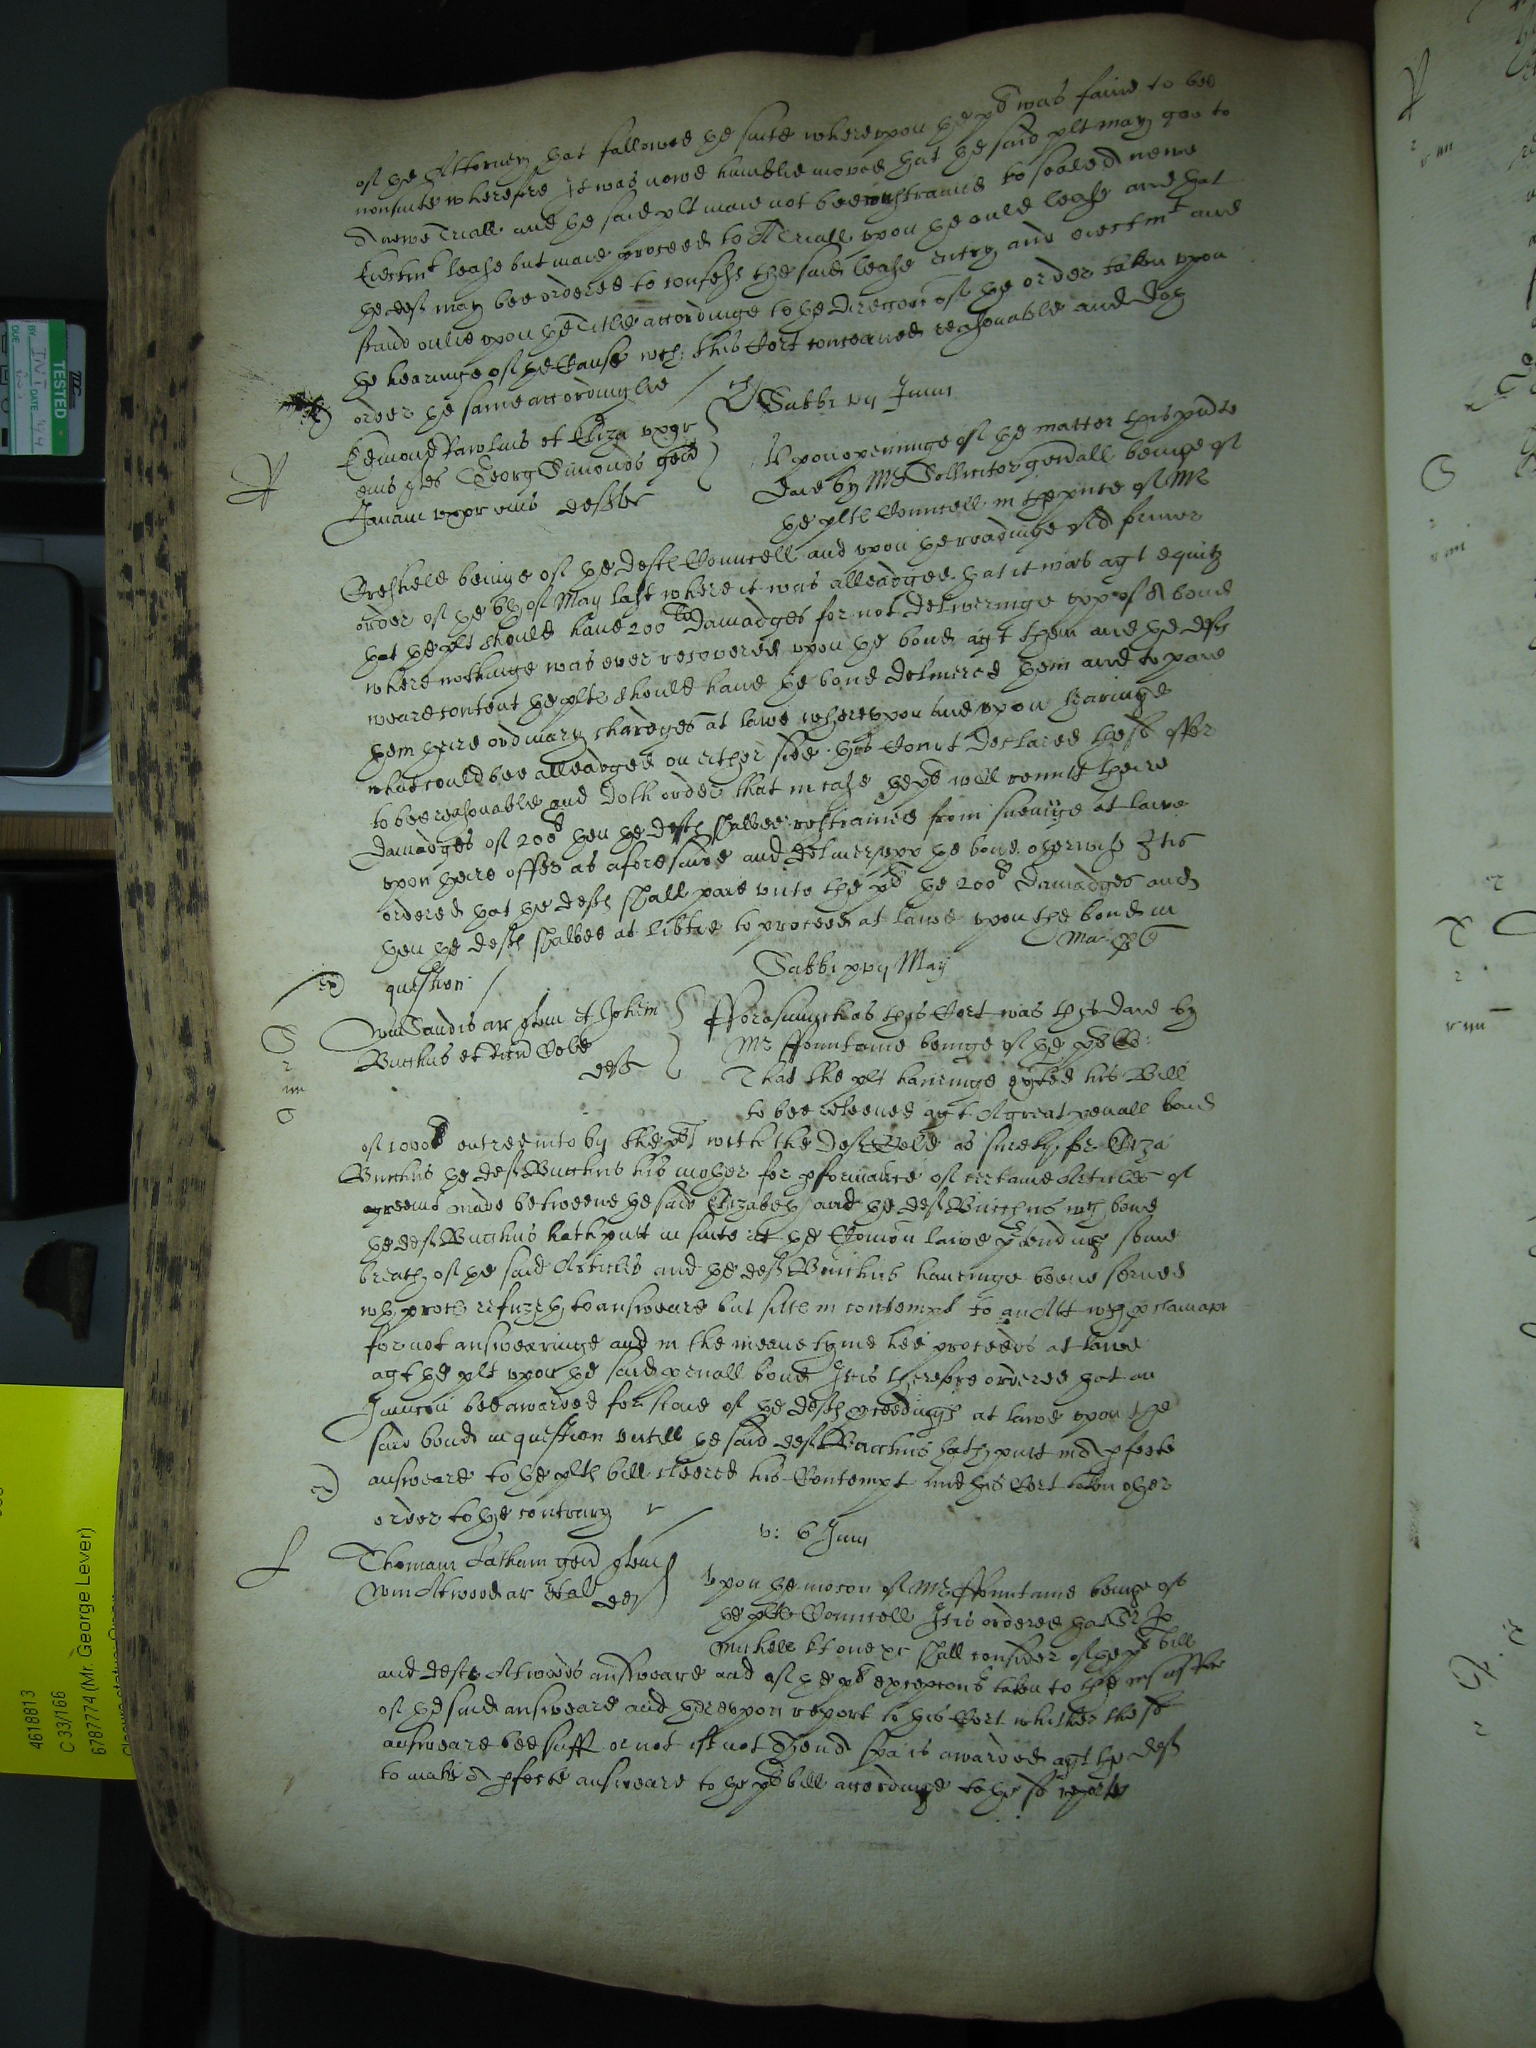 of the Attorney that followed the suite whereupon the pl was faine to bee
nonsuite wherefore It was nowe humblie moved that the said plt may goe to
a newe Triall and the said plt maie not bee constrained to seale a newe
Eiectmt lease but maie proceed to A Triall upon the ould lease and that
the deft may bee ordered to confesse the said lease entry and eiectmt and
stand onlie upon the Title accordinge to the direccon of the order taken upon
the hearinge of the Cause wch this Cort conceaved reasonable and doth
order the same accordinglie
Sabbi Junii
Edmond Rawlins et Eliza uxor
eius ples Georg Simonds gen
Janam uxor eius defts
Upon openinge of the matter this pnte
daie by Mr Sollicitor generall beinge of
the plts Councell in the pnce of Mr
beinge of the defts Councell and upon the readinge of a former
order of the of May last where it was alleadged that it was agt equity
that the plt should have 200 damadges for not deliveringe upp of a bond
where nothinge was ever recovered upon the bond agt them and the defts
weare content the plts should have the bond delivered them and to paie
them theire ordinary chardges at lawe whereupon and upon hearinge
what could bee alleadged on either side this Court declared these offer
to bee reasonable and doth order that in case the pl will remitt theire
damadges of 200 then the defts shalbee restrained from sueinge at lawe
upon theire offer as aforesaid and deliver upp the bond otherwise It is
ordered that the defts shall paie unto the pl the 200 damadges and
then the defts shalbee at libtie to proceed at lawe upon the bond in
question
Sabbi May
Wm Sandis ar plen et Johem
Bucchus et Cole
deft
Fforasmuch as this Cort was this daie by
Mr Ffountaine beinge of the pl Co:
That the plt havinge exhted his Bill
to bee releeved agt A great penall bond
of 1000 entred into by the pl with the deft Cole as surety for Eliza
Bucchus the deft Bucchus his mother for pformance of certaine Articles of
agreemt made betweene the said Elizabeth and the deft Bucchus wch bond
the deft Bucchus hath putt in suite at the Comon lawe ptendinge some
breach of the said Articles and the deft Bucchus havinge beene served
wth proces refuzeth to answeare but sitts in contempt to an Att wth proclamacon
for not answearinge and in the meane tyme hee proceeds at lawe
agt the plt upon the said penall bond It is therefore ordered that an
Iniuncon bee awarded for staie of the defts pceedings at lawe upon the
said bond in question untill the said deft Bucchus hath putt in a pfecte
answeare to the plts bill cleered his Contempt and this Cort taken other
order to the contrary
6 Junii
Thomam Latham gen plen
Wm Atwood ar et al def
Upon the mocon of Mr Ffountaine beinge of
the plts Councell It is ordered that Sr Jo
Michell kt one &c shall consider of the pl bill
and defte Atwoods answeare and of the pl excepcons taken to the insufficie
of the said answeare and thereupon report to this Cort whither the sd
answeare bee suff or not if not then a spa is awarded agt the deft
to make a pfecte answeare to the pl bill accordinge to the sd reporte
TESTED
DATE
4618813
C 33/166
6787774 (Mr. George Lever)